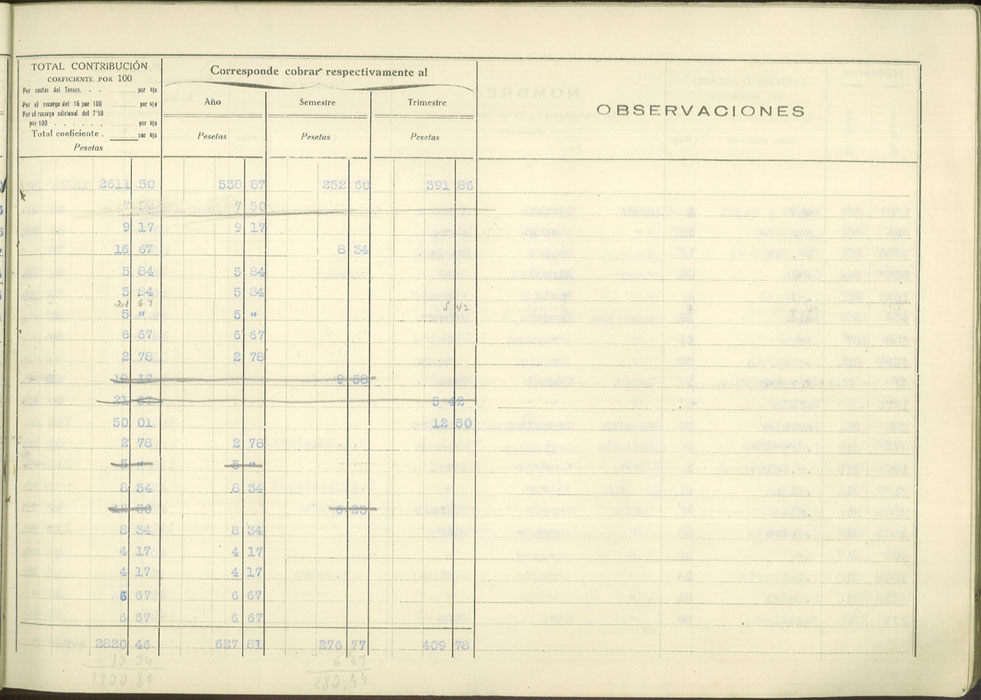 TOTAL CONTRIBUCIÓN
COEFICIENTE POR 100
Por cuotas del Tesoro. . . por 0|0
Por el recargo del 16 por 100 por 0|0
Por el recargo adicional del 7'50
por 100 . . . . . . por 0|0
Total coeficiente . por 0|0
Pesetas
Corresponde cobrar respectivamente al
Año Semestre Trimestre
Pesetas Pesetas Pesetas
OBSERVACIONES
50 558 87 252 60 391 86
7 50 7 50
9 17 9 17
16 67 8 34
5 84 5 84
5 84 5 84
5 42
5 " 5 "
6 67 6 67
2 78 2 78
19 17 9 58
21 67 5 42
50 01 12 50
2 78 2 78
5 " 5 "
8 34 8 34
8 34 8 34
4 17 4 17
4 17 4 17
6 67 6 67
6 67 6 67
2820 46 627 81 276 77 409 78